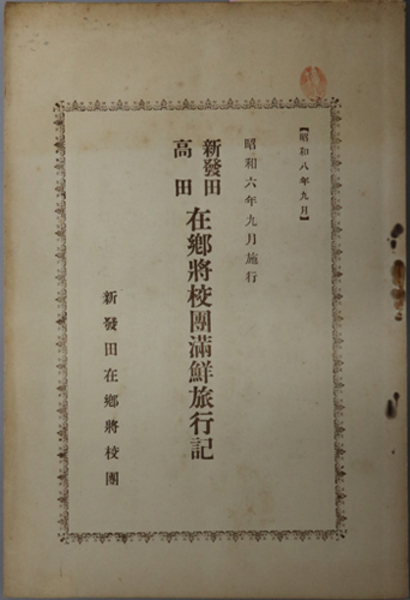 【昭和八年九月】
昭和六年九月施行
新發田
高田
在鄕將校團滿鮮旅行記
新發田在鄕將校團